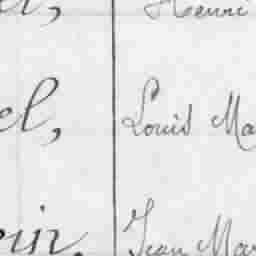 Henri
el, Louis Ma
in, Jean Mar